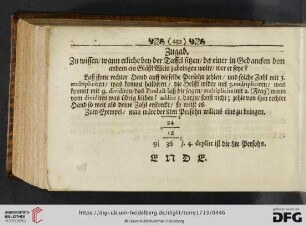 (432)
Zugab.
Zu wissen/ wann etliche bey der Taffel sitzen/ da einer in Gedancken dem
andern ein Gläßl Wein zubringen wolte/ wer er seye?
Laß ihme rechter Hand auff dieselbe Persohn zehlen/ und solche Zahl mit 3.
multipliciren/ was kommt halbiren; die Helfft wider mit 3. multipliciren/ was
kommt mit 9. dividiren/ das Product laß sagen/ multiplicirs mit 2. (Frag) wann
vom dividiren was übrig blibe? addire 1. darzu/ sonst nicht; zehle von ihm rechter
Hand so weit als deine Zahl erstreckt/ so weist es.
Zum Exempel/ man wäre der 8ten Persohn willens eins zu bringen.
24
12
9| 36 | 4. duplirt ist die 8te Persohn.
E N D E.
http://digi.ub.uni-heidelberg.de/diglit/terry1713/0446
© Universitätsbibliothek Heidelberg